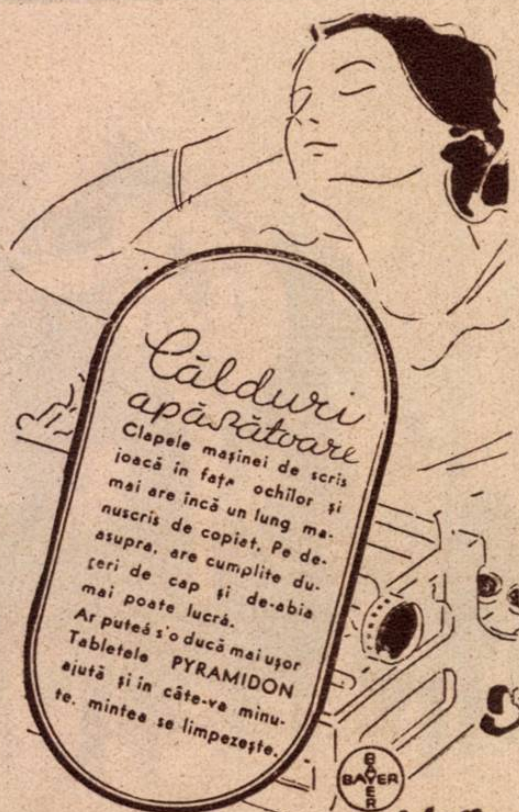 Călduri
apăsătoare
Clapele mașinei de scris
joacă în fața ochilor și
mai are încă un lung ma-
nuscris de copiat. Pe de-
asupra, are cumplite du-
reri de cap și de-abia
mai poate lucră.
Ar puteá s'o ducă mai ușor
Tabletele PYRAMIDON
ajută și în câte-va minu-
te, mintea se limpezește.
BAYER
BAYER